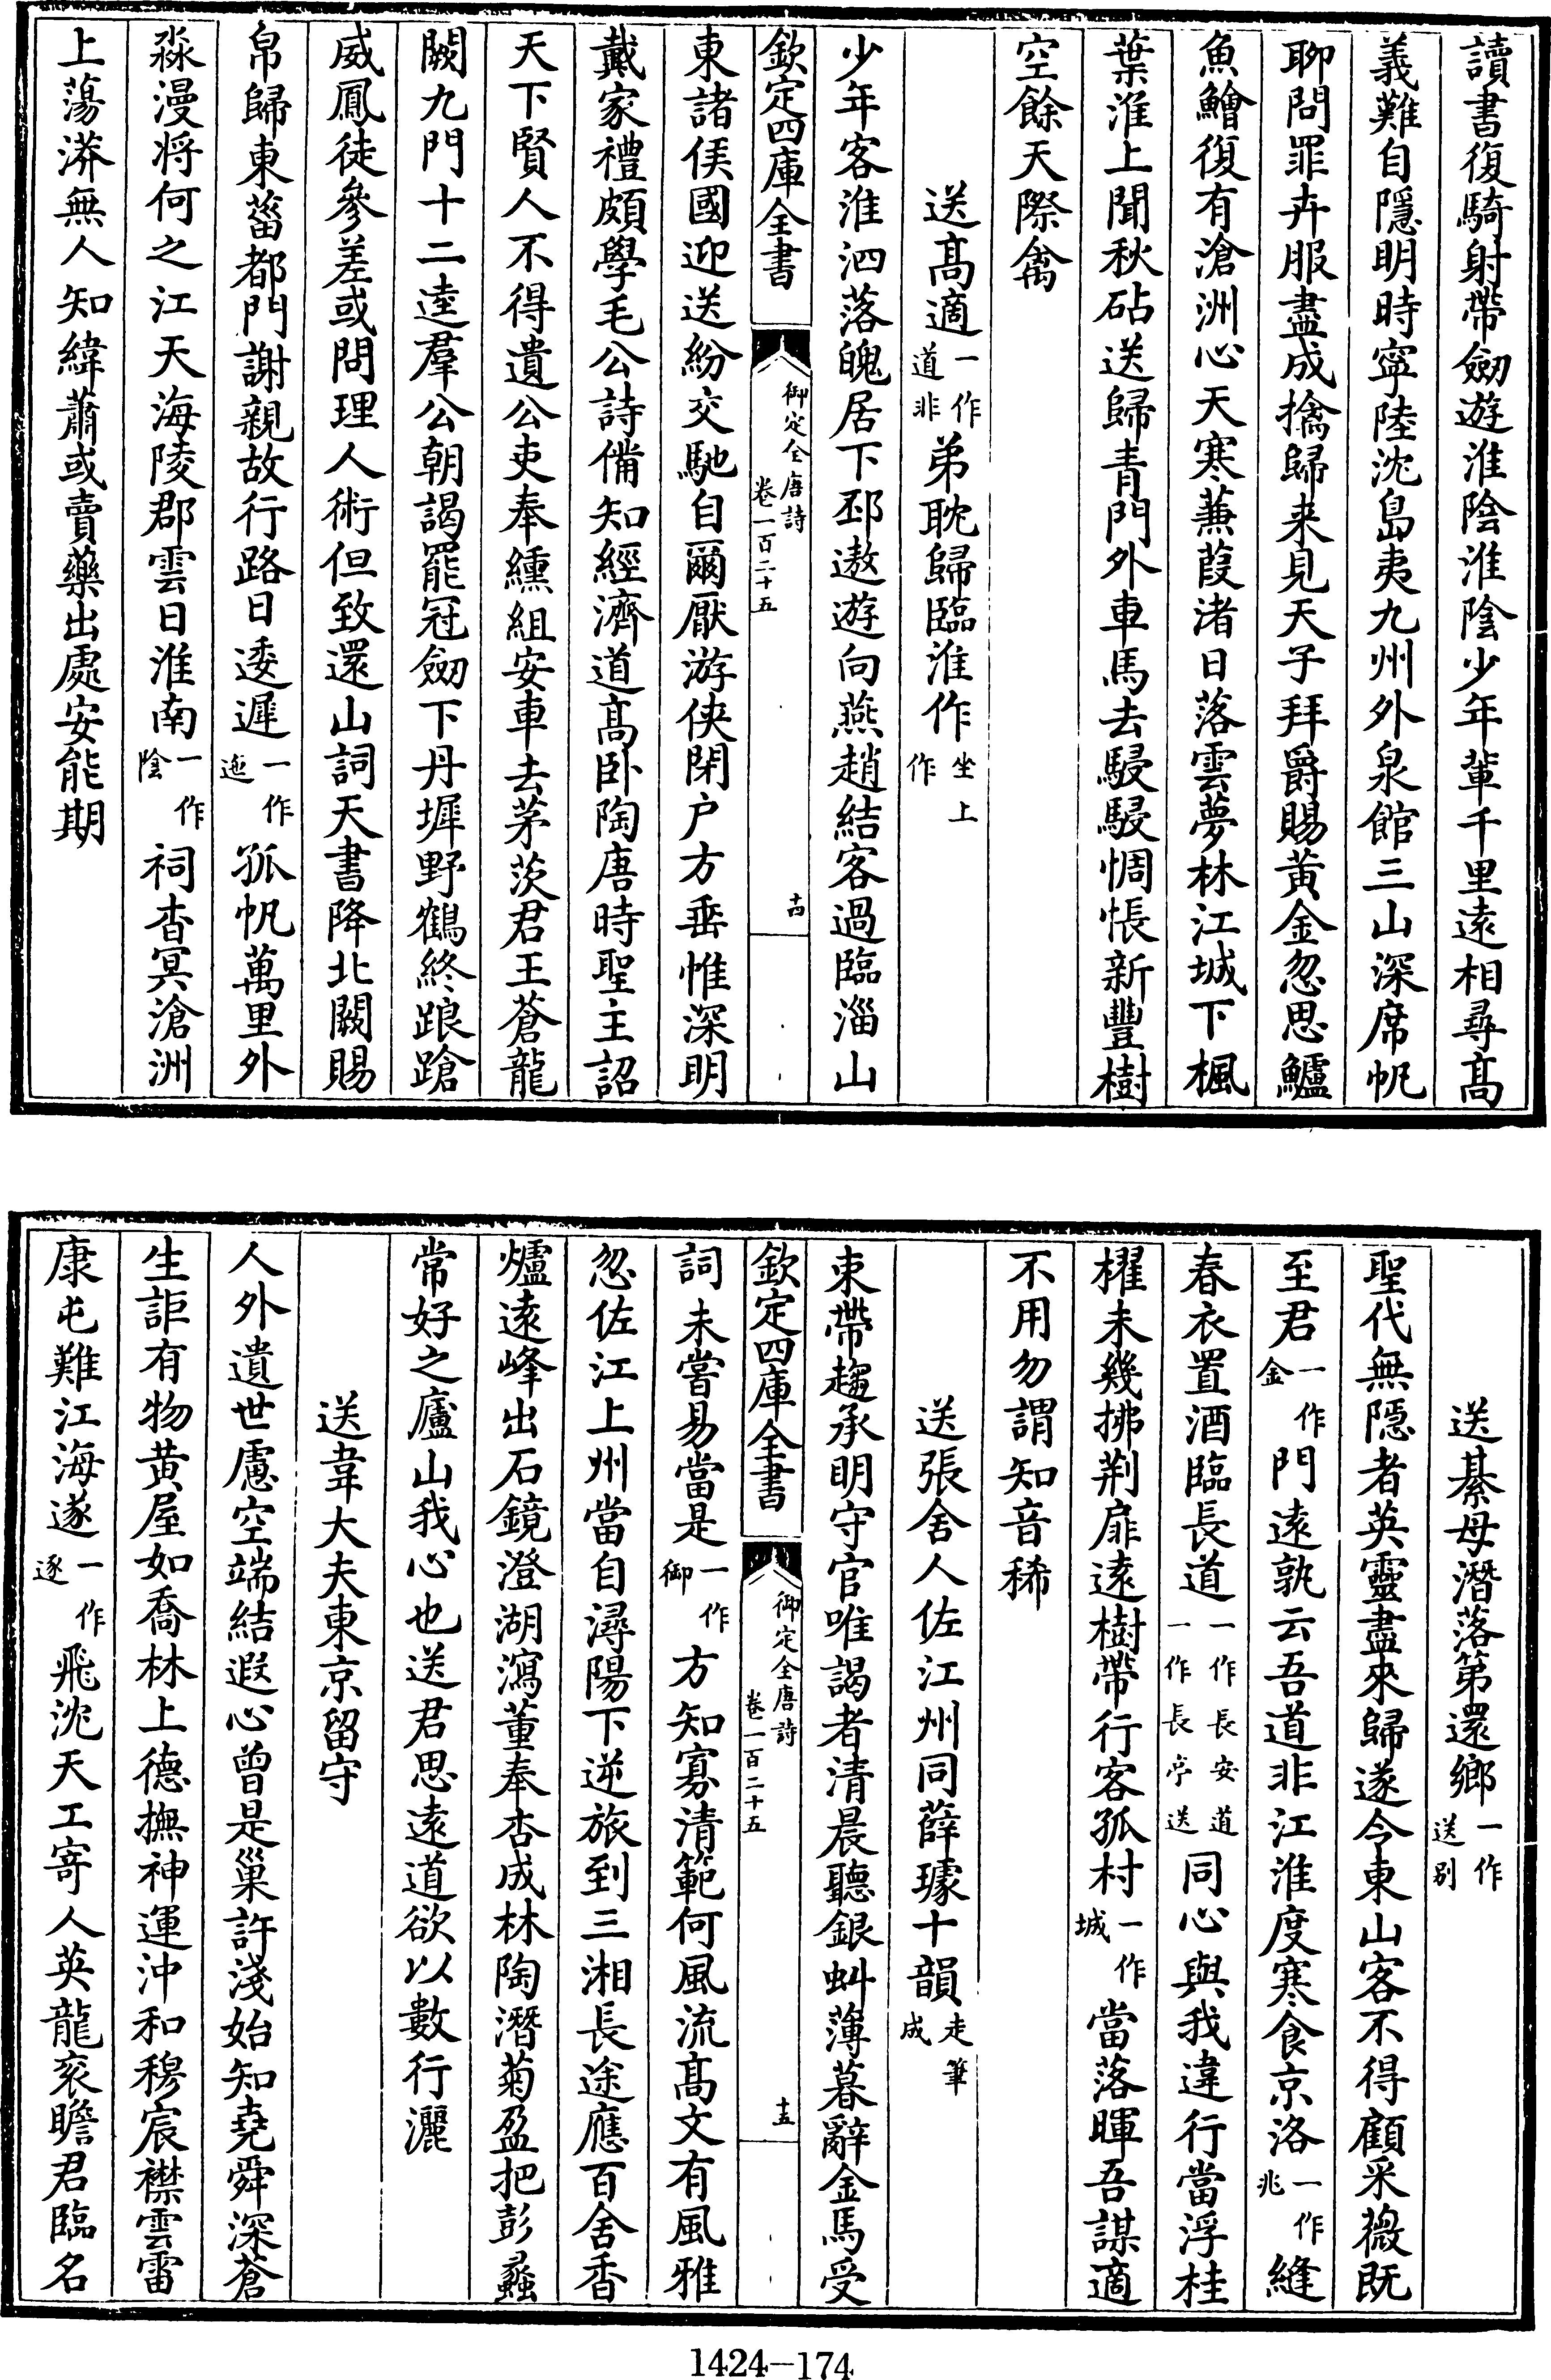 讀書復騎射帶劒遊淮陰淮陰少年輩千里遠相尋髙
義難自隱明時寜陸沈島夷九州外泉館三山深席帆
聊問罪卉服盡成擒歸来見天子拜爵賜黄金忽思鱸
魚鱠復有滄洲心天寒蒹葭渚日落雲夢林江城下楓
葉淮上聞秋砧送歸青門外車馬去駸駸惆悵新豐樹
空餘天際禽
送髙適一作道非弟耽歸臨淮作坐上作
少年客淮泗落魄居下邳遨遊向燕趙結客過臨淄山
欽定四庫全書
御定全唐詩
卷一百二十五
十四
東諸侯國迎送紛交馳自爾厭游俠閉户方垂惟深明
戴家禮頗學毛公詩備知經濟道髙卧陶唐時聖主詔
天下賢人不得遺公吏奉纁組安車去茅茨君王蒼龍
闕九門十二逵羣公朝謁罷冠劒下丹墀野鶴終踉蹌
威鳳徒參差或問理人術但致還山詞天書降北闕賜
帛歸東菑都門謝親故行路日逶遲一作迤孤帆萬里外
淼漫将何之江天海陵郡雲日淮南一作陰祠杳冥滄洲
上蕩漭無人知緯蕭或賣藥出處安能期
送綦母潛落第還鄉一作送别
聖代無隠者英靈盡來歸遂令東山客不得顧采薇既
至君一作金門遠孰云吾道非江淮度寒食京洛一作兆縫
春衣置酒臨長道一作長安道一作長亭送同心與我違行當浮桂
櫂未幾拂荆扉遠樹帶行客孤村一作城當落暉吾謀適
不用勿謂知音稀
送張舍人佐江州同薛璩十韻走筆成
束帶趨承明守官唯謁者清晨聽銀虬薄暮辭金馬受
欽定四庫全書
御定全唐詩
卷一百二十五
十五
詞未嘗易當是一作御方知寡清範何風流髙文有風雅
忽佐江上州當自潯陽下逆旅到三湘長途應百舍香
爐遠峰出石鏡澄湖瀉董奉杏成林陶潛菊盈把彭蠡
常好之廬山我心也送君思遠道欲以數行灑
送韋大夫東京留守
人外遺世慮空端結遐心曾是巢許淺始知堯舜深蒼
生詎有物黄屋如喬林上德撫神運沖和穆宸襟雲雷
康屯難江海遂一作逐飛沈天工寄人英龍衮瞻君臨名
1424—174